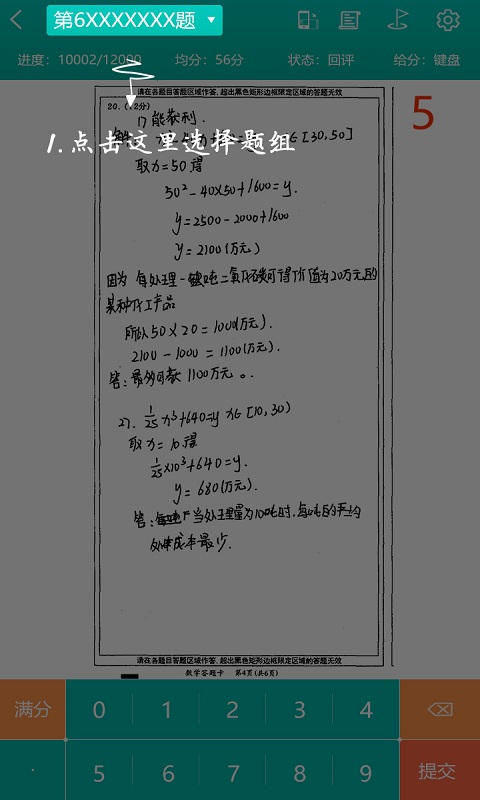 第6XXXXXXX题
进度: 10002/12000 均分: 56分 状态: 回评 给分: 键盘
请在各题目答题区域作答, 超出黑色矩形边框限定区域的答题无效
20. (12分)
5
1) 能获利.
1.点击这里选择题组
∈[30,50]
取x=50得
50²-40×50+1600=y.
y=2500-2000+1600
y=2100(万元)
因为 每处理一吨二氧化碳可得价值为20万元的
某种化工产品
所以50×20=1000(万元).
2100-1000=1100(万元).
答: 最多可获1100万元。
2). 1/25 x³+640=y x∈[10,30)
取x=10得
1/25×10³+640=y.
y=680(万元).
答: 当处理量为10吨时,每吨的平均
处理成本最少.
请在各题目答题区域作答, 超出黑色矩形边框限定区域的答题无效
数学答题卡 第4页(共6页)
满分 0 1 2 3 4
. 5 6 7 8 9 提交